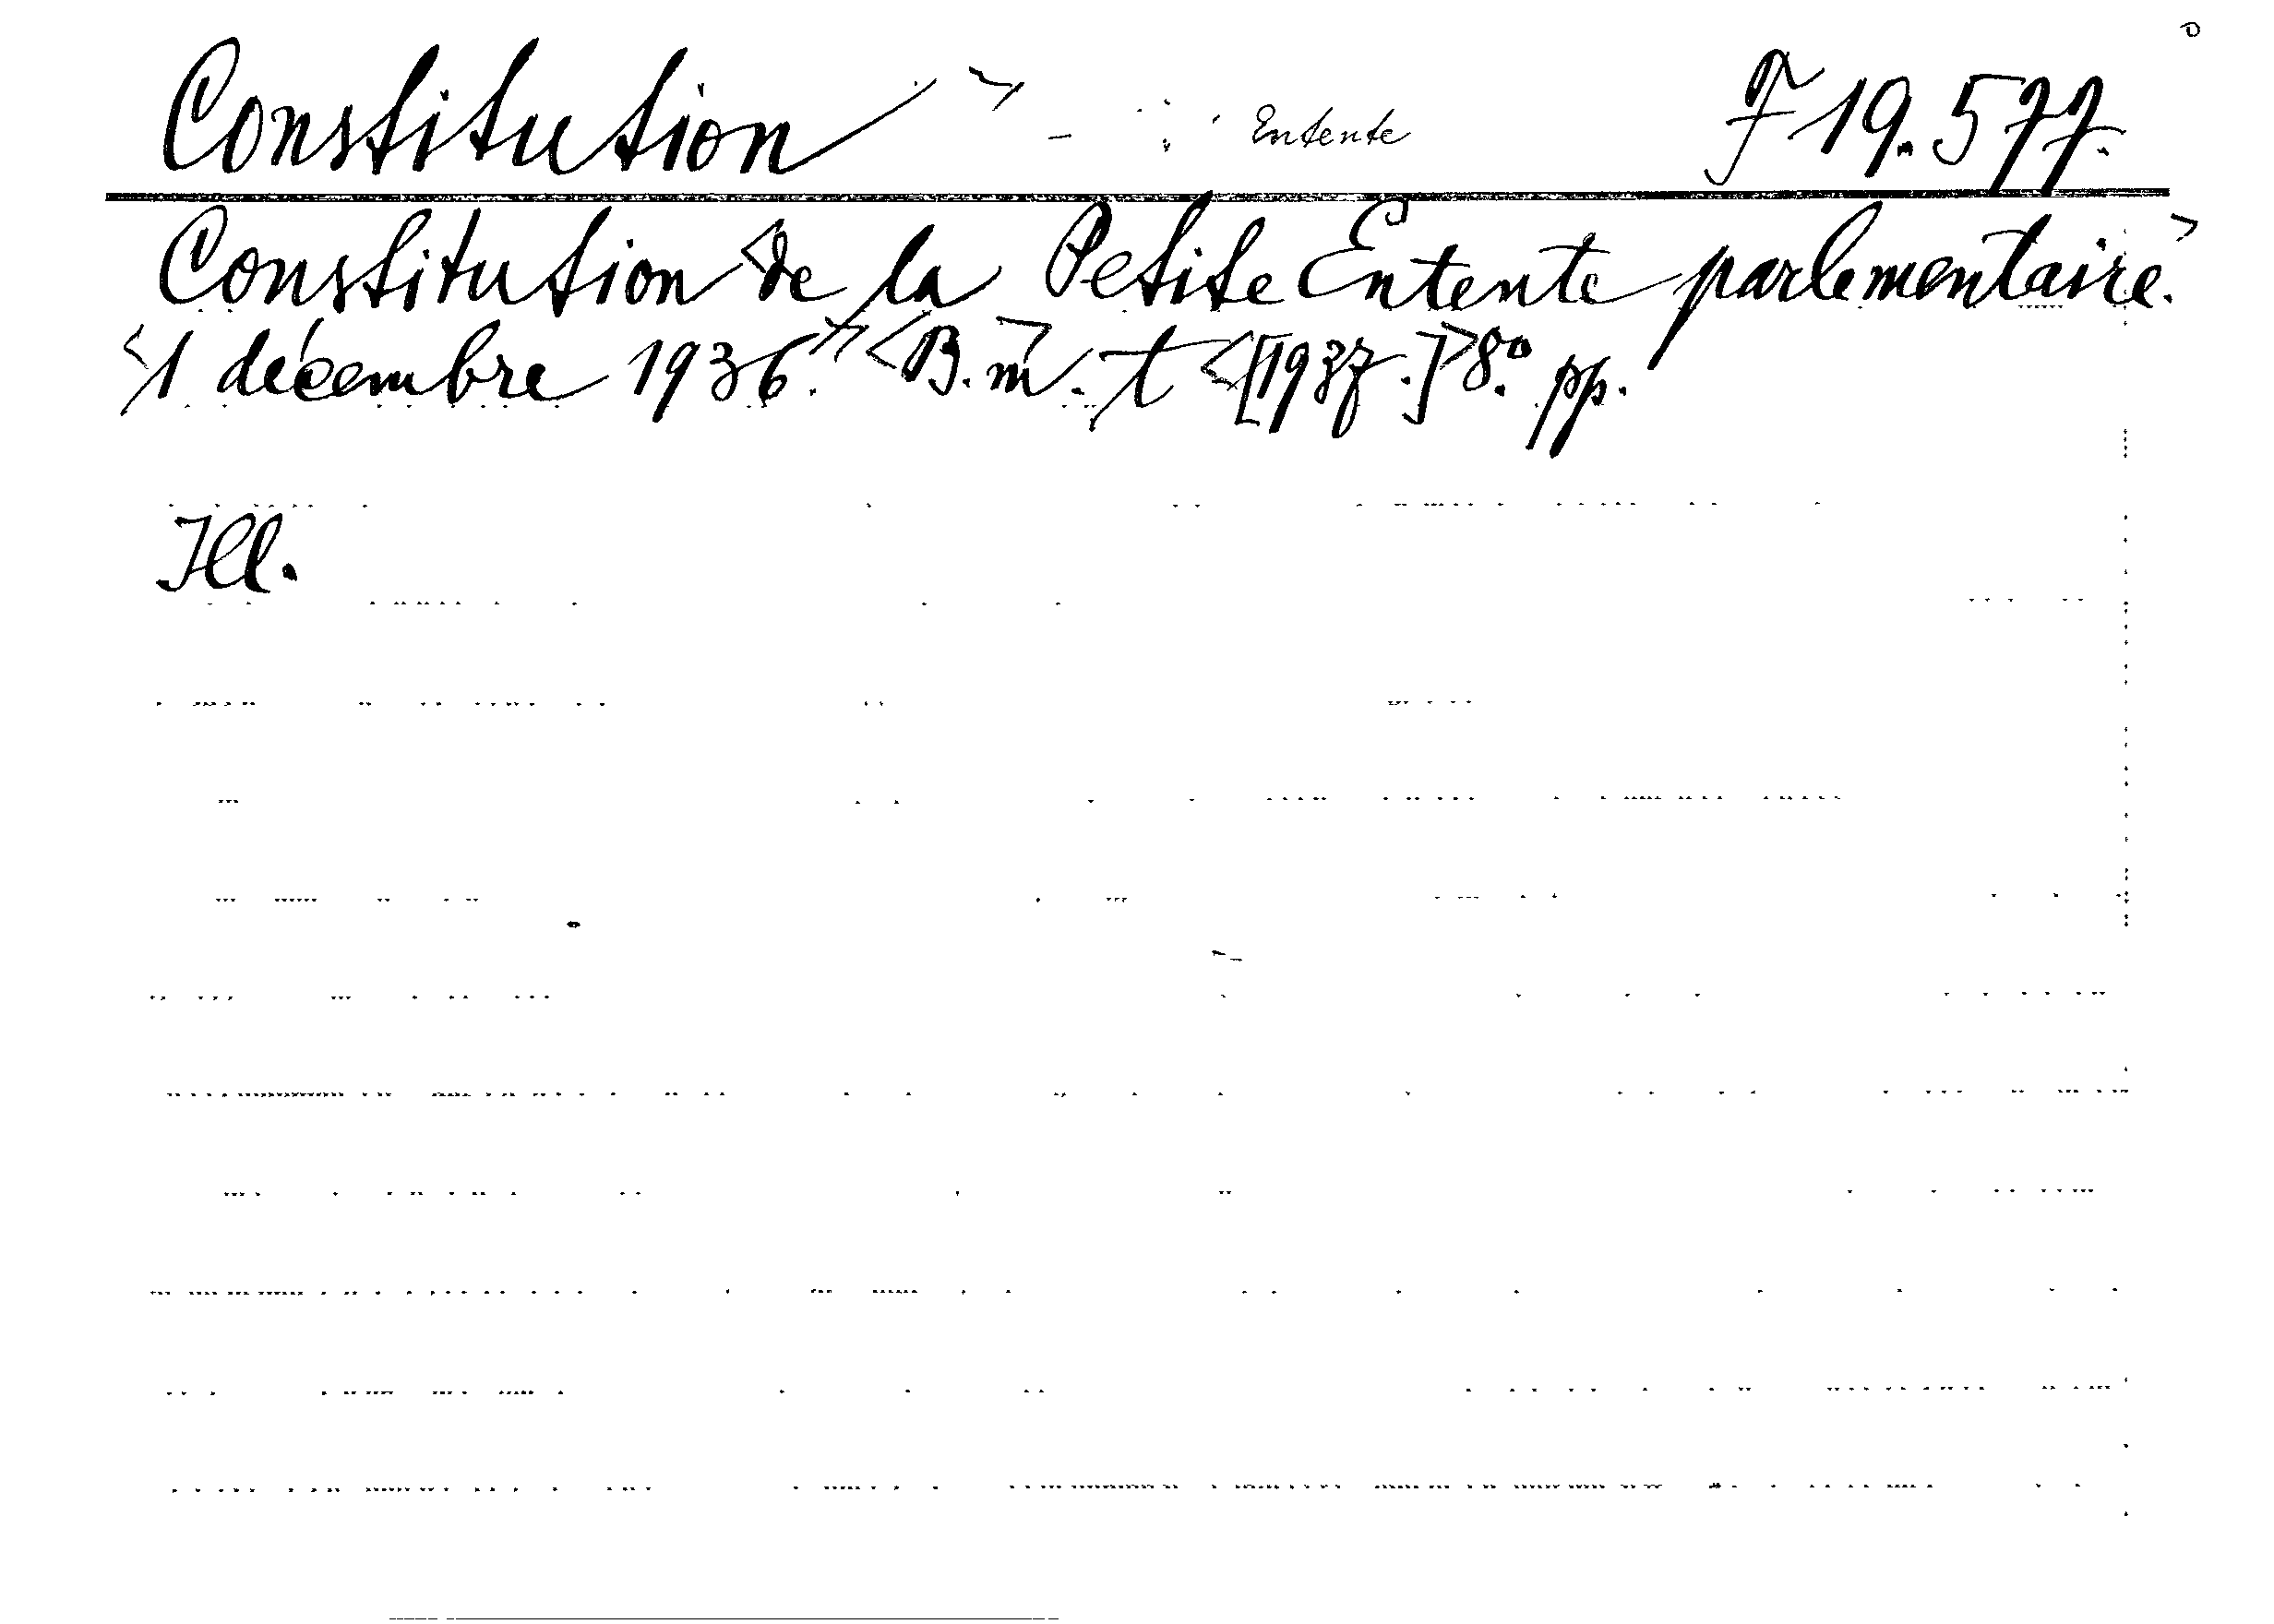 Constitution > - Entente F 19.577.
Constitution <de la Petite Entente parlementaire.>
<1 décembre 1936.>> <B. m>. t <[1937.]> 8.° pp.
Ill.